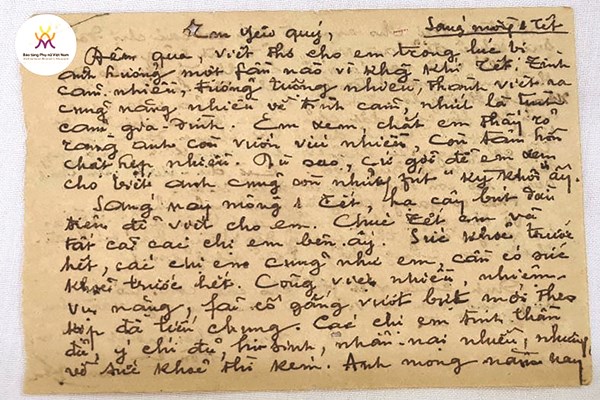 Bảo tàng Phụ nữ Việt Nam
Em yêu quý,
Sáng mồng 1 Tết
Đêm qua, viết thơ cho em trong lúc bị
ảnh hưởng một fần nào vì không khí Tết, tình
cảm nhiều, tưởng tượng nhiều, thành viết ra
cũng nặng nhiều về tình cảm, nhất là tình
cảm gia-đình. Em xem, chắt em thấy rõ
ràng anh còn vướn víu nhiều, còn tâm hồn
chật hẹp nhiều. Dù sao, cứ gởi để em xem
cho biết anh cũng còn những fút "kỳ khôi" ấy.
Sáng nay mồng 1 Tết, hạ cây bút đầu
tiên để viết cho em. Chúc Tết em và
tất cả các chị em bên ấy. Sức khoẻ trước
hết, các chị em cũng như em, cần có sức
khoẻ trước hết. Công việc nhiều, nhiệm-
vụ nặng, fải cố gắng vượt bực mới theo
kịp đà tiến chung. Các chị em tinh thần
đủ, ý chí đủ, hi-sinh, nhẫn-nại nhiều, nhưng
về sức khoẻ thì kém. Anh mong năm nay